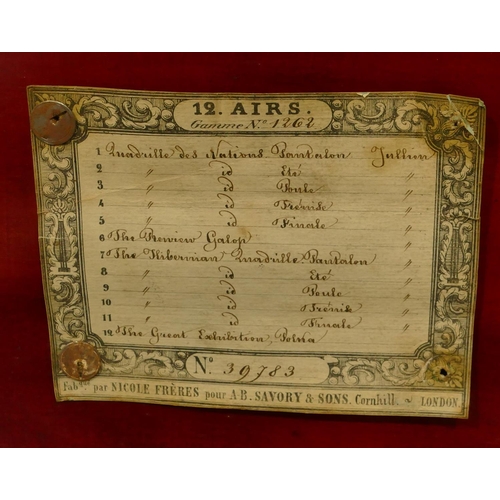 12. AIRS.
Gamme No. 1262
1 Quadrille des Nations Pantalon Jullien
2 " id Eté "
3 " id Poule "
4 " id Trénise "
5 " id Finale "
6 The Review Galop "
7 The Hiberman Quadrille Pantalon "
8 " id Eté "
9 " id Poule "
10 " id Trénise "
11 " id Finale "
12 The Great Exhibition, Polka "
No. 39783
Fabqué par NICOLE FRÈRES pour A.B. SAVORY & SONS. Cornhill. ~ LONDON